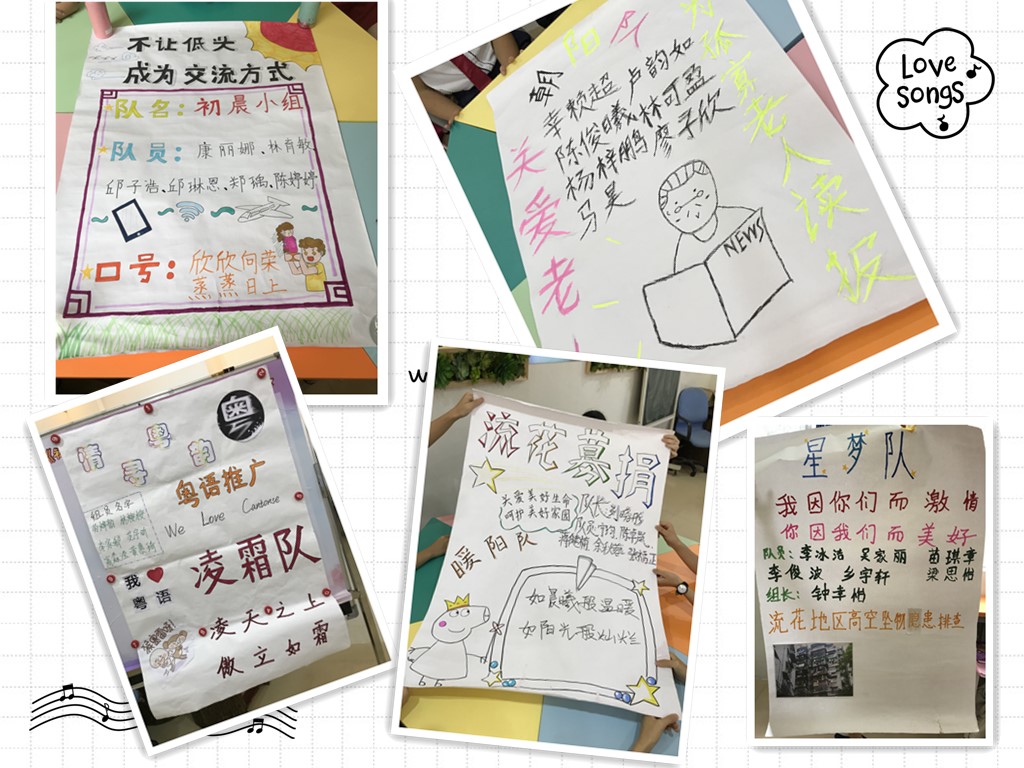 不让低头
成为交流方式
队名：初晨小组
队员：康丽娜、林育敏
邱子浩、邱琳恩、郑瑀、陈婷婷
口号：欣欣向荣
蒸蒸日上
朝阳
辜赖超 卢韵如
陈俊曦 林可盈
杨梓鹏 廖予欣
马昊
关爱老
为孤寡老人读报
NEWS
Love
songs
w
粤
情寻粤韵
粤语推广
We Love Cantonse
组员名字
凌霜队
我
粤语
凌天之上
傲立如霜
流花募捐
关爱美好生命
呵护美好家园
队长
队员
暖阳队
如晨曦般温暖
如阳光般灿烂
星梦队
我因你们而激情
你因我们而美好
队员：李冰浩 吴家丽 苗琪章
李俊波 乡宇轩 梁思彬
组长：钟幸彬
流花地区高空坠物隐患排查